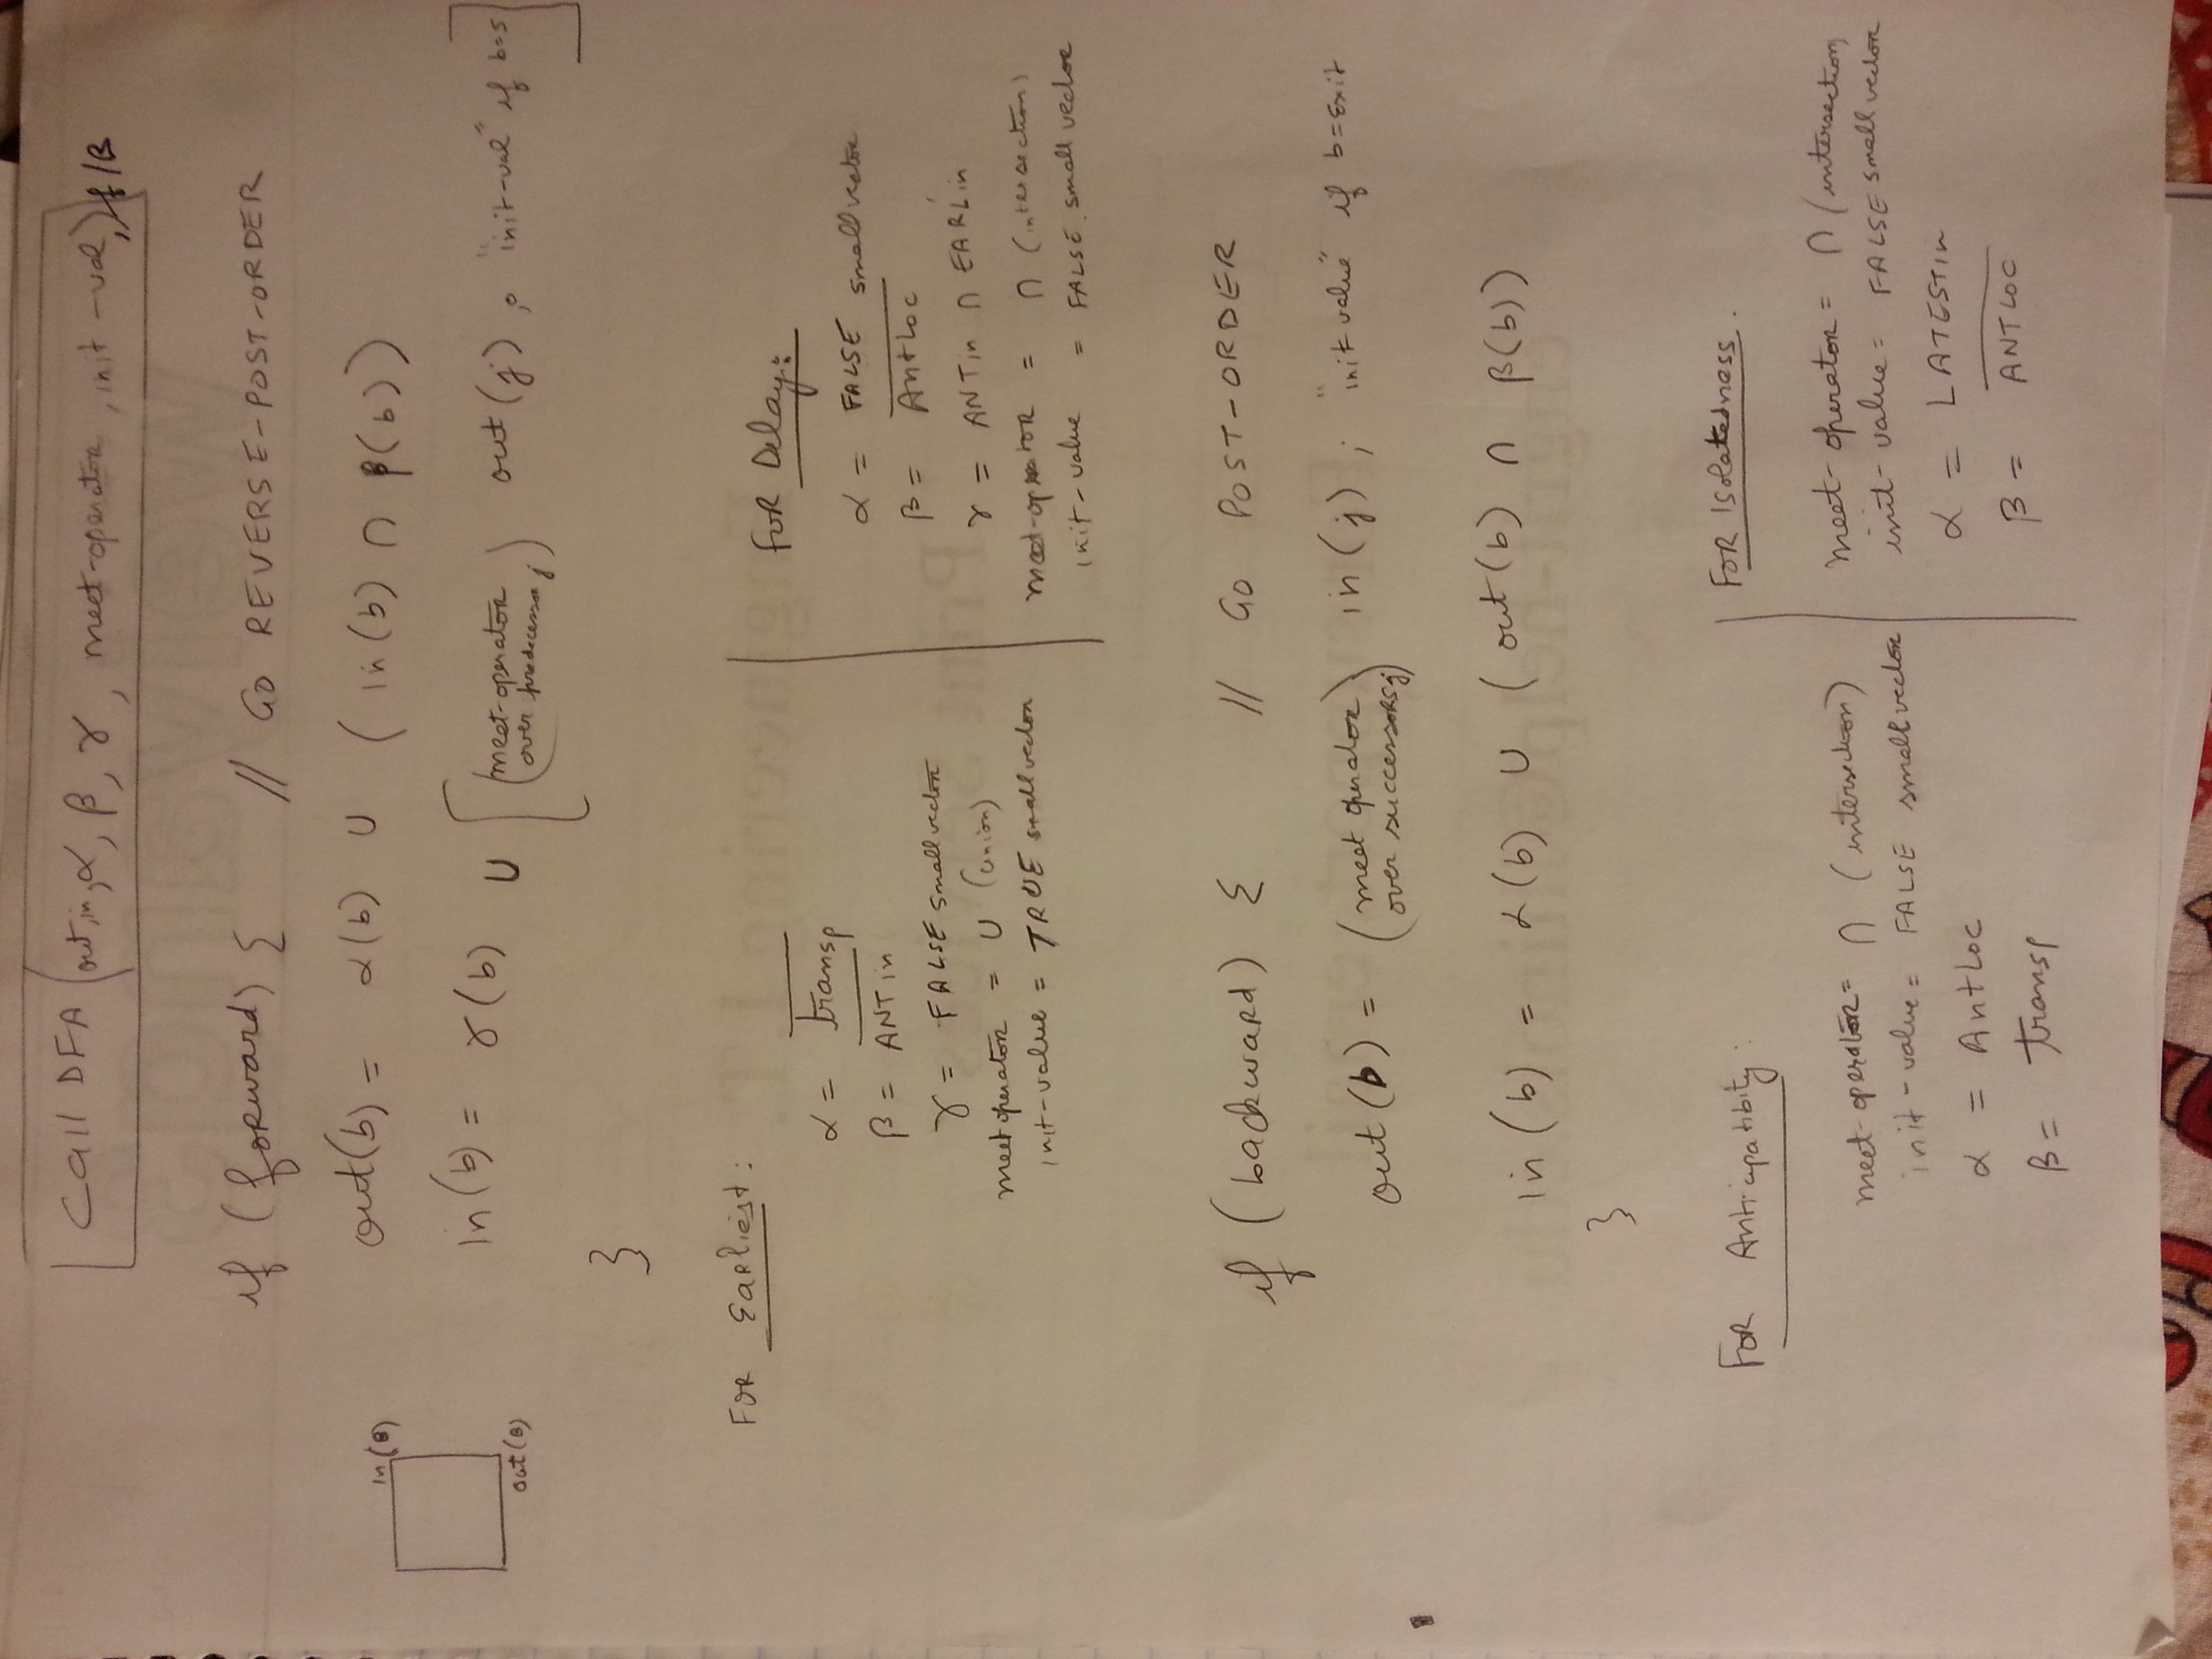 Call DFA (out, in, α, β, γ, meet-operator, init-val, f/B
if (forward) { // GO REVERSE-POST-ORDER
out(b) = α(b) ∪ (in(b) ∩ β(b))
in(b) = γ(b) ∪ [(meet-operator over predecessor j) out(j) ; "init-val" if b=s]
}
in(B)
out(B)
FOR Earliest:
α = \overline{transp}
β = \overline{ANTin}
γ = FALSE smallvector
meetoperator = ∪ (union)
init-value = TRUE smallvector
FOR Delay:
α = FALSE smallvector
β = \overline{AntLoc}
γ = ANTin ∩ EARLin
meet-operator = ∩ (intersection)
init-value = FALSE smallvector
if (backward) { // GO POST-ORDER
out(b) = (meet operator over successors j) in(j) ; "init value" if b=Exit
in(b) = α(b) ∪ (out(b) ∩ β(b))
}
FOR Anticipatibity:
meet-operator = ∩ (intersection)
init-value = FALSE smallvector
α = AntLoc
β = transp
FOR Isolatedness.
meet-operator = ∩ (intersection)
init-value = FALSE smallvector
α = LATESTin
β = \overline{ANTLOC}